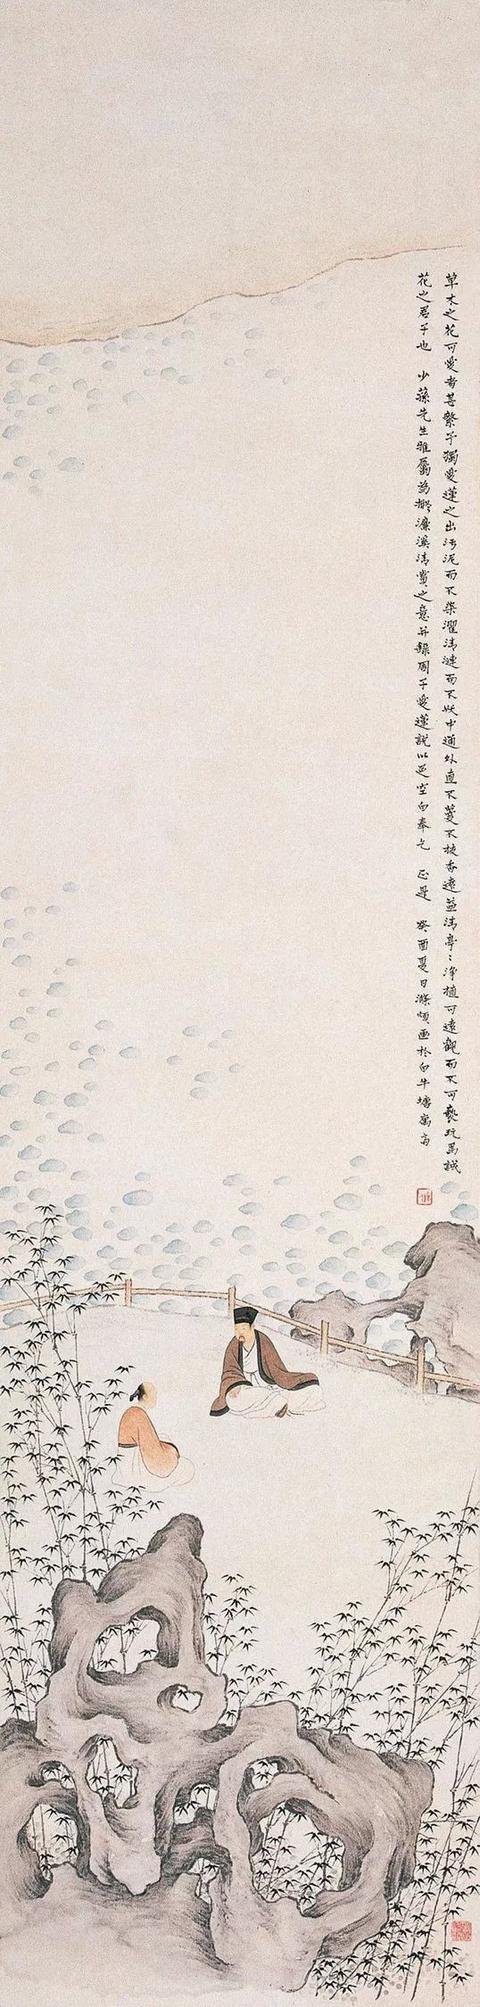 草木之花可愛者甚繁予獨愛蓮之出污泥而不染濯清漣而不妖中通外直不蔓不枝香遠益清亭〻淨植可遠觀而不可褻玩焉誠
花之君子也 少蓀先生雅屬為擬濂溪清賞之意并錄周子愛蓮說以逗空白奉乞 正是 癸酉夏日滌煩畫於白牛塘寓齋